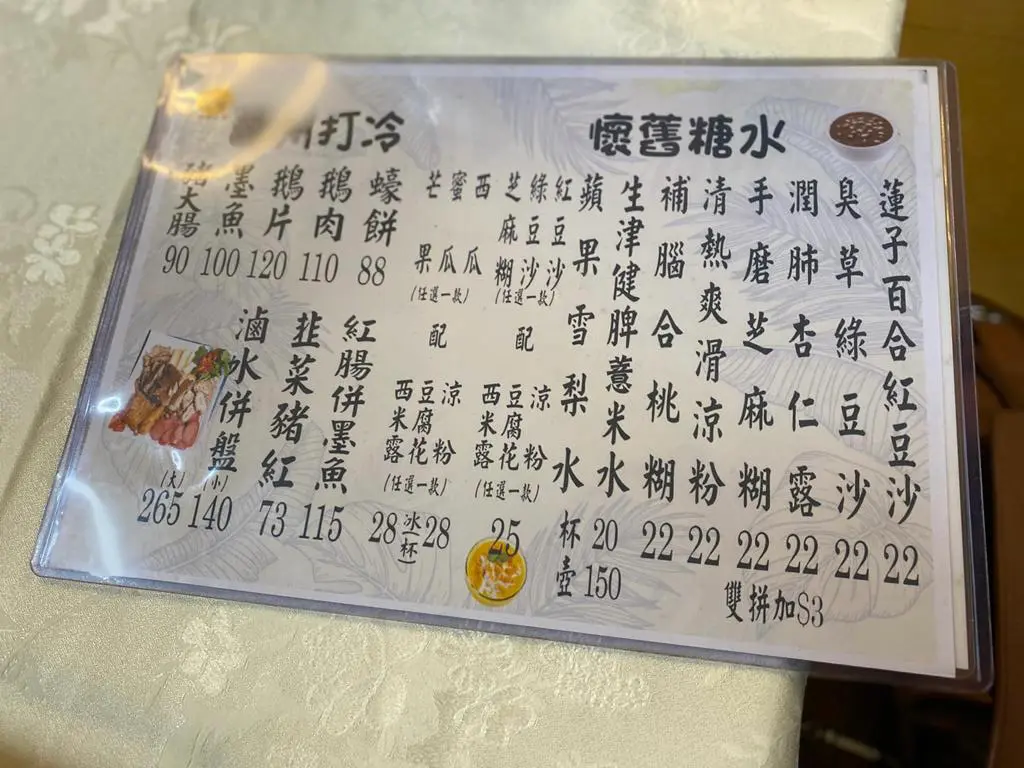 懷舊糖水
蓮子百合紅豆沙 22
臭草綠豆沙 22
潤肺杏仁露 22
手磨芝麻糊 22
清熱爽滑涼粉 22
補腦合桃糊 22
生津健脾薏米水
蘋果雪梨水
杯 20
壺 150
雙拼加$3
紅豆沙
綠豆沙
芝麻糊
(任選一款)
配
涼粉
豆腐花
西米露
(任選一款)
25
西瓜
蜜瓜
芒果
(任選一款)
配
涼粉
豆腐花
西米露
(任選一款)
28(冰杯)28
打冷
蠔餅 88
鵝肉 110
鵝片 120
墨魚 100
豬大腸 90
紅腸併墨魚 115
韭菜豬紅 73
滷水併盤
(小) 140
(大) 265